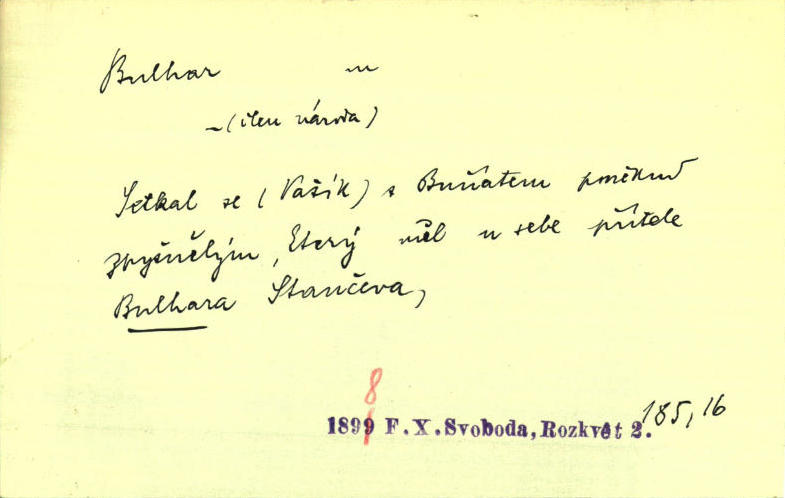 Bulhar m
~ (člen národa)
Setkal se (Vašík) s Buňatem poněkud
zpyšnělým, který měl u sebe přítele
Bulhara Stančeva,
8
1899 F.X.Svoboda, Rozkvět 2. 185, 16